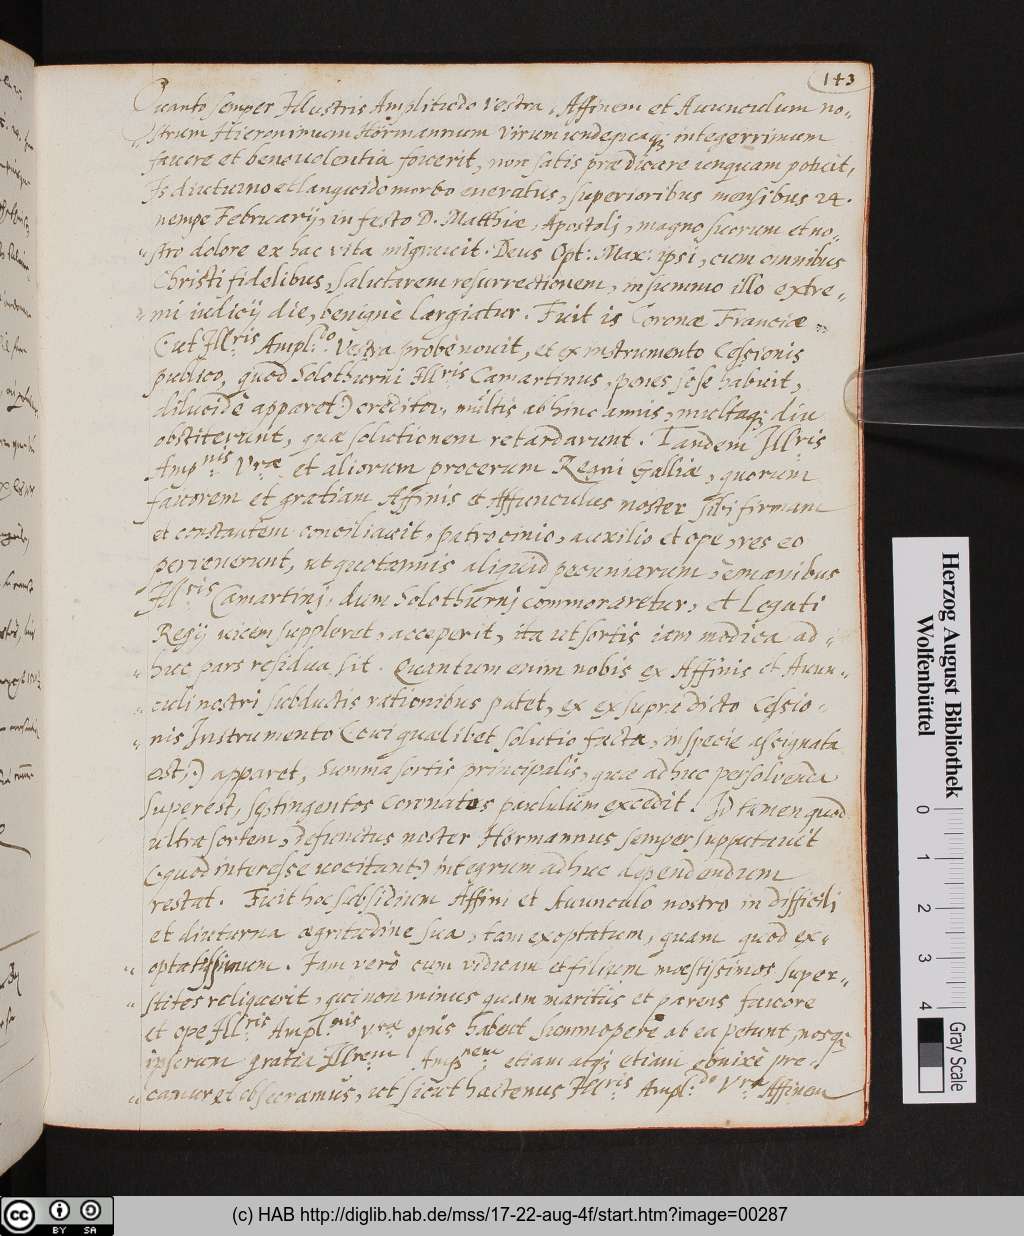 143
Quanto semper Illustris Amplitudo Vestra, Affinem et Auunculum no=
strum Hieronimum Hörmannum Virum undequaq; integerrimum
fauore et beneuolentia fouerit, non satis prædicare unquam potuit,
Is diuturno et languido morbo eneruatus, superioribus mensibus 24.
nempe Februarij, in festo D. Matthiæ, Apostoli, magno suorum et no=
stro dolore ex hac vita migrauit. Deus Opt: Max: ipsi, cum omnibus
Christi fidelibus, salutarem resurrectionem, in summo illo extre=
mi iudicij die, benignè largiatur. Fuit is Coronæ Franciæ
(ut Ill:ris Ampl:do Vestra probè nouit, et ex instrumento Cessionis
publico, quod Solothurni Ill:ris Camartinus, penes sese habuit,
dilucidè apparet) creditor, multis ab hinc annis, multaq; diu
obstiterunt, quæ solutionem retardarunt. Tandem Ill:ris
Amp:nis Vræ et aliorum procerum Regni Galliæ, quorum
fauorem et gratiam Affinis et Auunculus noster sibi firmam
et constantem conciliauit, patrocinio, auxilio et ope, res eo
peruenerunt, ut quotannis aliquid pecuniarum, è manibus
Ill:ris Camartinj, dum Solothurnj commoraretur, et Legati
Regij uicem suppleret, acceperit, ita ut sortis iam modica ad=
huc pars residua sit. Quantum enim nobis ex Affinis et Auun=
culi nostri subductis rationibus patet, ex supra dicto Cessio=
nis Instrumento (cui quælibet solutio facta, in specie assignata
est,) apparet, Summa sortis principalis, quæ adhuc persoluenda
superest, septingentos coronatos paululum excedit. Id tamen quod
ultra sortem, defunctus noster Hörmannus semper supputauit
(quod interesse uocitant) integrum adhuc dependendum
restat. Fuit hoc subsidium Affini et Auunculo nostro in difficili
et diuturna ægritudine sua, tam exoptatum, quam quod ex=
optatissimum. Iam verò cum viduam et filium mœstissimos super=
stites reliquerit, qui non minus quam maritus et parens fauore
et ope Ill:ris Ampl:nis Vræ opus habent summopere ac ea petunt, nosq;
ipsorum gratia Ill:rem Amp:nem etiam atq; etiam obnixè pre=
camur et obsecramus, ut sicut hactenus Ill:ris Ampl:do Vra Affinem
Herzog August Bibliothek
Wolfenbüttel
0 1 2 3 4
Gray Scale
cc BY SA
(c) HAB http://diglib.hab.de/mss/17-22-aug-4f/start.htm?image=00287